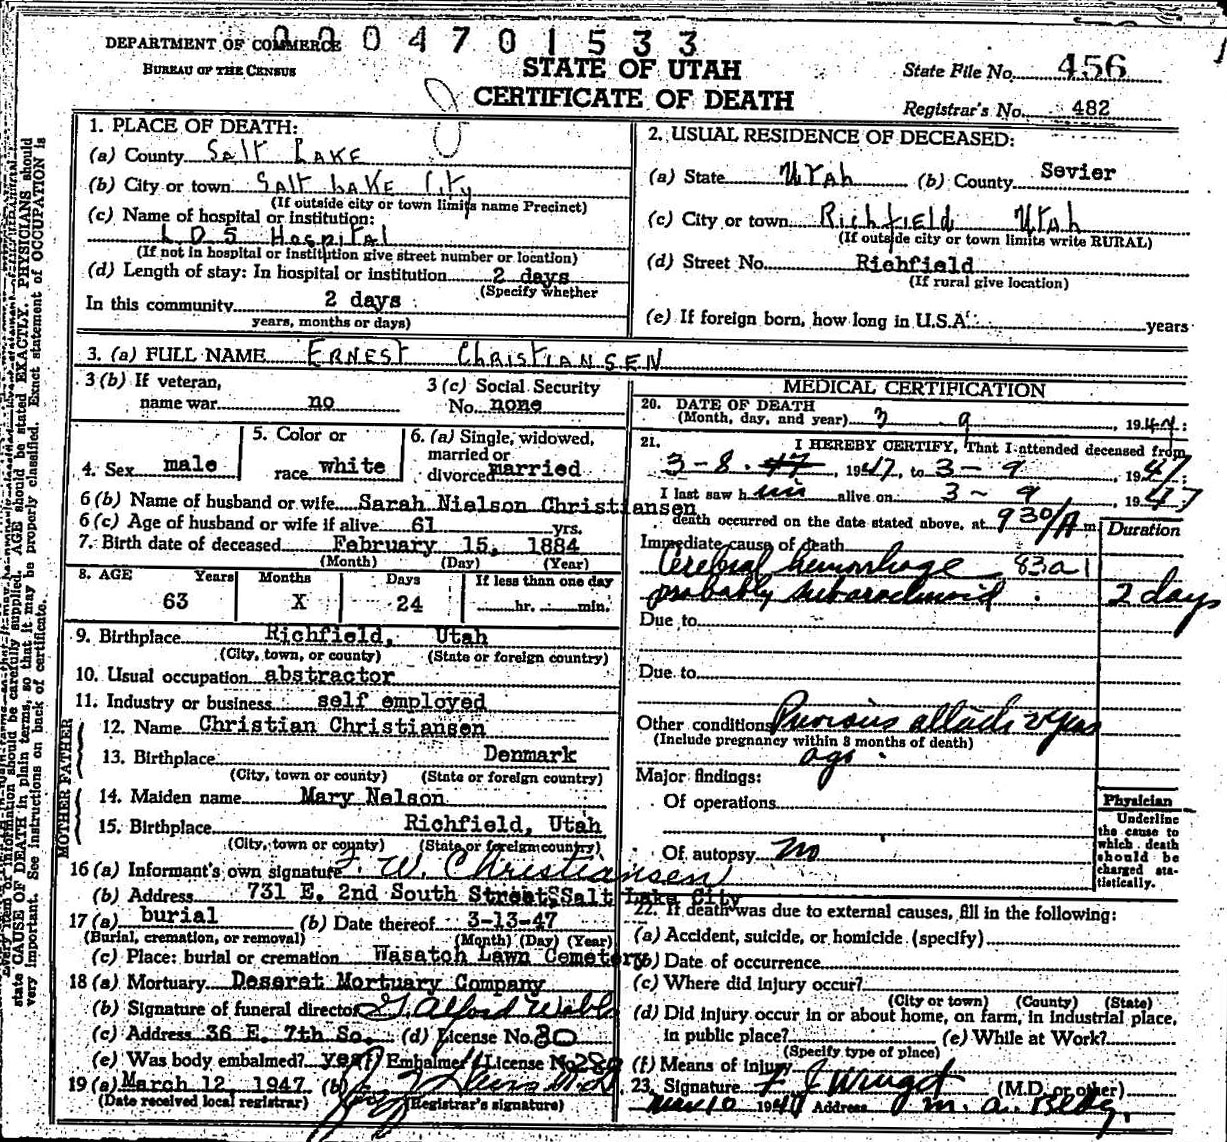 0004701533
DEPARTMENT OF COMMERCE
BUREAU OF THE CENSUS
STATE OF UTAH
CERTIFICATE OF DEATH
State File No. 456
Registrar's No. 482
1. PLACE OF DEATH:
(a) County Salt Lake
(b) City or town Salt Lake City
(If outside city or town limits name Precinct)
(c) Name of hospital or institution:
L.D.S Hospital
(If not in hospital or institution give street number or location)
(d) Length of stay: In hospital or institution 2 days
(Specify whether
In this community 2 days
years, months or days)
2. USUAL RESIDENCE OF DECEASED:
(a) State Utah (b) County Sevier
(c) City or town Richfield Utah
(If outside city or town limits write RURAL)
(d) Street No. Richfield
(If rural give location)
(e) If foreign born, how long in U.S.A. years
3. (a) FULL NAME Ernest Christiansen
3 (b) If veteran,
name war no
3 (c) Social Security
No. none
4. Sex male
5. Color or
race white
6. (a) Single, widowed,
married or
divorced married
6 (b) Name of husband or wife Sarah Nielson Christiansen
6 (c) Age of husband or wife if alive 61 yrs.
7. Birth date of deceased February 15, 1884
(Month) (Day) (Year)
8. AGE Years Months Days If less than one day
63 X 24 hr. min.
9. Birthplace Richfield, Utah
(City, town, or county) (State or foreign country)
10. Usual occupation abstractor
11. Industry or business self employed
FATHER
12. Name Christian Christiansen
13. Birthplace Denmark
(City, town or county) (State or foreign country)
MOTHER
14. Maiden name Mary Nelson
15. Birthplace Richfield, Utah
(City, town or county) (State or foreign country)
16 (a) Informant's own signature F. W. Christiansen
(b) Address 731 E. 2nd South Street, Salt Lake City
17 (a) burial (b) Date thereof 3-13-47
(Burial, cremation, or removal) (Month) (Day) (Year)
(c) Place: burial or cremation Wasatch Lawn Cemetery
18 (a) Mortuary Deseret Mortuary Company
(b) Signature of funeral director
(c) Address 36 E. 7th So. (d) License No. 80
(e) Was body embalmed? yes (f) Embalmer's License No.
19 (a) March 12, 1947 (b)
(Date received local registrar) (Registrar's signature)
MEDICAL CERTIFICATION
20. DATE OF DEATH
(Month, day, and year) 3 9, 1947
21. I HEREBY CERTIFY, That I attended deceased from
3-8, 1947, to 3-9 1947;
I last saw him alive on 3-9 1947
death occurred on the date stated above, at 930/A m
Duration
Immediate cause of death
Cerebral hemorrhage 83a1
probably subarachnoid 2 days
Due to
Due to
Other conditions Previous attack 2 years
(Include pregnancy within 3 months of death)
ago
Major findings:
Of operations
Of autopsy no
Physician
Underline
the cause to
which death
should be
charged sta-
tistically.
22. If death was due to external causes, fill in the following:
(a) Accident, suicide, or homicide (specify)
(b) Date of occurrence
(c) Where did injury occur?
(City or town) (County) (State)
(d) Did injury occur in or about home, on farm, in industrial place,
in public place? (e) While at Work?
(Specify type of place)
(f) Means of injury
23. Signature (M.D. or other)
Mar 10 1947 Address M. A. Bldg.
information should be carefully supplied. AGE should be stated EXACTLY. PHYSICIANS should
state CAUSE OF DEATH in plain terms, so that it may be properly classified. Exact statement of OCCUPATION is
very important. See instructions on back of certificate.